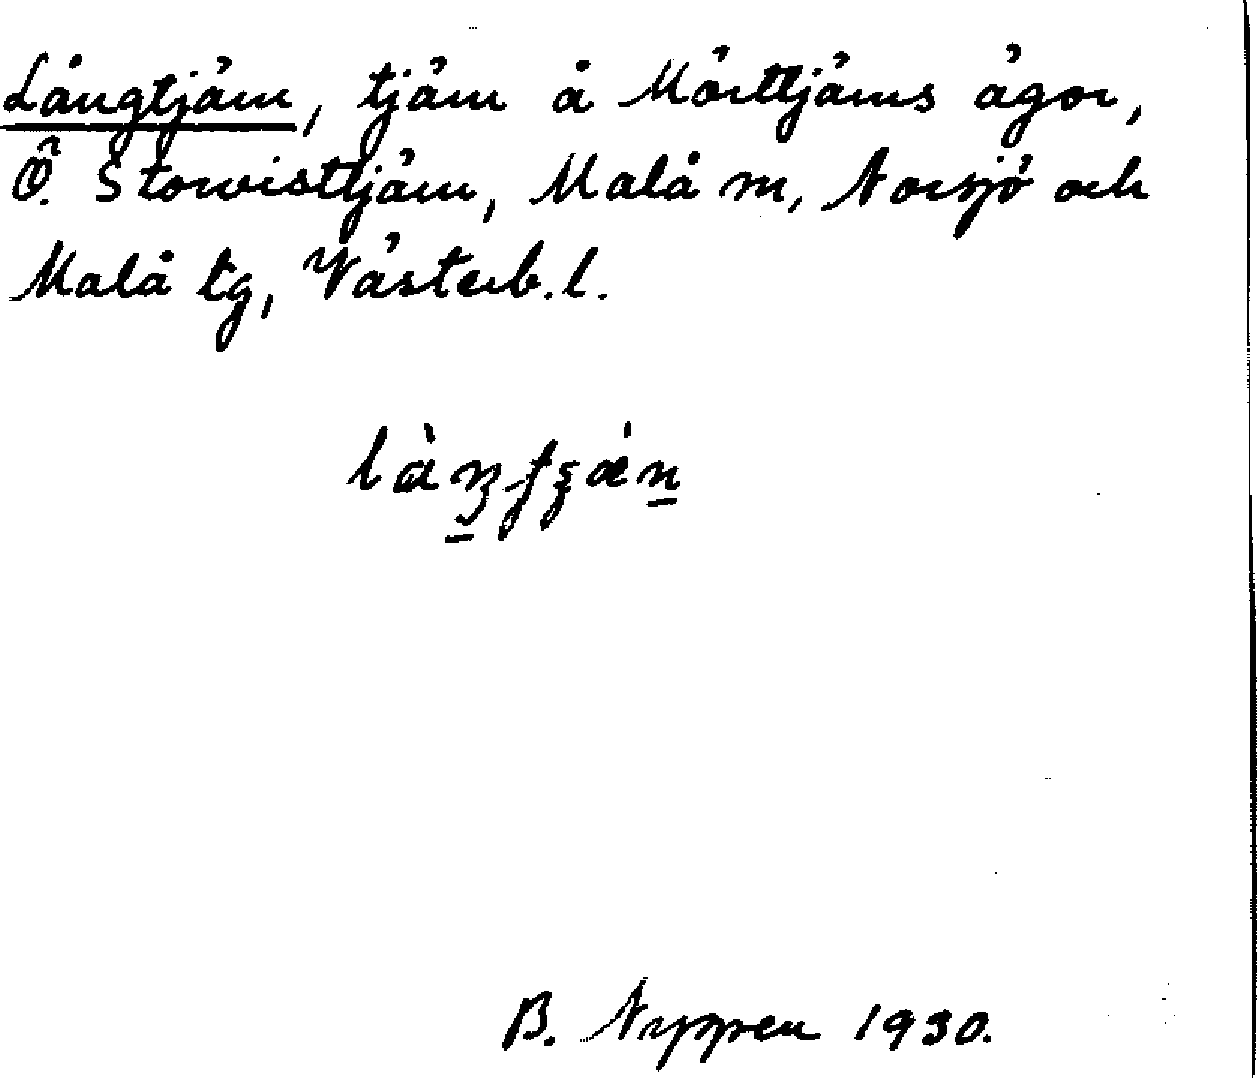 Långtjärn, tjärn å Mörttjärns ägor,
Ö. Storvisttjärn, Malå sn, Norsjö och
Malå tg, Västerb. l.
B. Nyppen 1930.